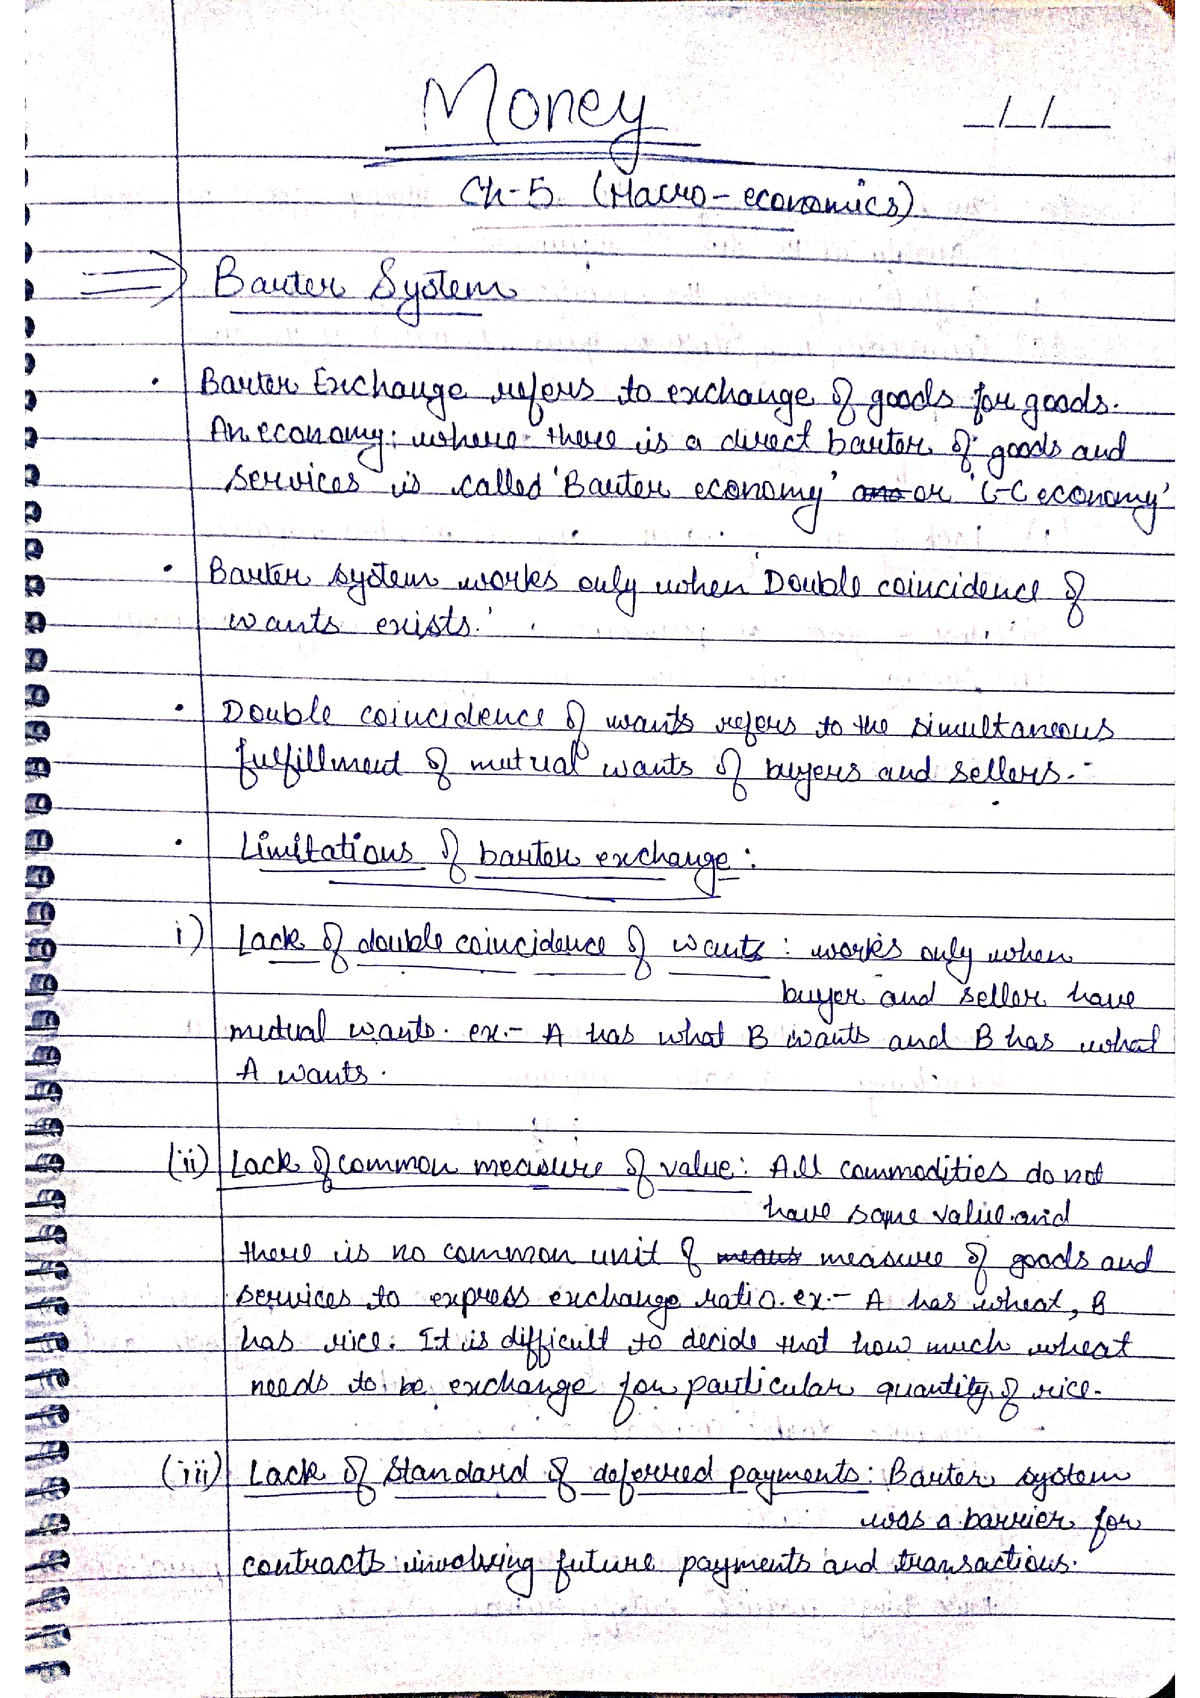 Money
_/_/__
Ch-5 (Macro-economics)
Barter System
• Barter Exchange refers to exchange of goods for goods.
An economy where there is a direct barter of goods and
services is called 'Barter economy' ~~and~~ or 'C-C economy'
• Barter system works only when Double coincidence of
wants exists.
• Double coincidence of wants refers to the simultaneous
fulfillment of mutual wants of buyers and sellers.
• Limitations of barter exchange:
i) Lack of double coincidence of wants: works only when
buyer and seller have
mutual wants. ex.- A has what B wants and B has what
A wants.
(ii) Lack of common measure of value: All commodities do not
have same value and
there is no common unit of ~~means~~ measure of goods and
services to express exchange ratio. ex.- A has wheat, B
has rice. It is difficult to decide that how much wheat
needs to be exchange for particular quantity of rice.
(iii) Lack of Standard of deferred payments: Barter system
was a barrier for
contracts involving future payments and transactions.